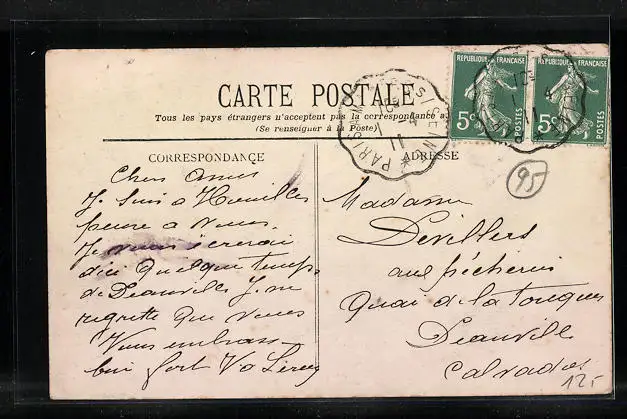 CARTE POSTALE
Tous les pays étrangers n'acceptent pas la correspondance a
(Se renseigner à la Poste)
REPUBLIQUE FRANÇAISE
5c POSTES
REPUBLIQUE FRANÇAISE
5c POSTES
CORRESPONDANCE
Chers Amis
Je suis a Houilles
pense a vous.
Je vous écrerai
dici quelque temps
de Deauville Je
regrette que vous
Vous embrass
bien fort Vo
ADRESSE
95
Madame
Devillers
aux pêcheries
Quai de la Touques
Deauville
Calvados
12,-